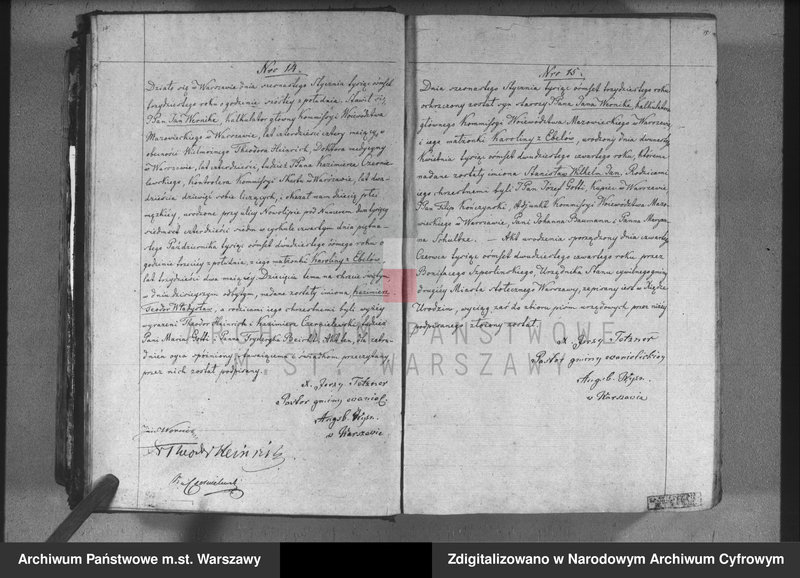 Nro 14.
Działo się w Warszawie dnia szesnastego Stycznia tysiąc ośmset
trzydziestego roku o godzinie szóstej z południa. Stawił się
JPan Jan Wernike, kalkulator główny Kommissyi Woiewództwa
Mazowieckiego w Warszawie, lat czterdzieści cztery maiący, w
obecności Wielmożnego Theodora Heinrich, Doktora medycyny
w Warszawie, lat czterdzieści, tudzież JPana Kazimierza Czerwie-
lewskiego, Kontrolera Kommissyi Skarbu w Warszawie, lat dwa-
dzieścia dziewięć sobie liczących, i okazał nam dziecię płci
męzkiey, urodzone przy ulicy Nowolipie pod Numerem dwa tysiące
siedmset czterdzieści siedm w cyrkule czwartym dnia piętna-
stego Października tysiąc ośmset dwudziestego ósmego roku o
godzinie trzeciey z południa, z iego małżonki Karoliny z Ebelów
lat trzydzieści dwa maiącey. Dziecięciu temu na chrzcie świętym
w dniu dzisieyszym odbytym, nadane zostały imiona, Kazimierz
Teodor Władysław, a rodzicami iego chrzestnemi byli wyżey
wyrażeni Theodor Heinrich i Kazimierz Czerwielewski, tudzież
Pani Maria Gotti i Panna Fryderyka
przez nich został podpisany.
X. Jerzy Tetzner
Pastor gminy ewanielic.
Augsb. Wyzn.
w Warszawie
Theodor Heinrich
Nro 15.
Dnia szesnastego Stycznia tysiąc ośmset trzydziestego roku
ochrzczony został syn starszy JPana Jana Wernike, kalkulatora
głównego Kommissyi Woiewództwa Mazowieckiego w Warszawie
i iego małżonki Karoliny z Ebelów, urodzony dnia dwunastego
Kwietnia tysiąc ośmset dwudziestego czwartego roku, któremu
nadane zostały imiona Stanisław Wilhelm Jan. Rodzicami
iego chrzestnemi byli JPan Józef Gotti, Kupiec w Warszawie
JPan Filip Kończynski, Adjunkt Kommissyi Woiewództwa Mazo-
wieckiego w Warszawie, Pani Johanna Baumann i Panna Maryan-
na Schultze. — Akt urodzenia sporządzony dnia czwartego
Czerwca tysiąc ośmset dwudziestego czwartego roku, przez
Bonifacego Urzędnika Stanu cywilnego gminy
drugiey Miasta stołecznego Warszawy, zapisany iest w Księdze
Urodzin, wyciąg zaś do zbioru pism urzędowych przez niżey
podpisanego złożony został.
X. Jerzy Tetzner
Pastor gminy ewanielickiey
Augsb. Wyzn.
w Warszawie
ARCHIWUM PAŃSTWOWE
M.ST. WARSZAWY
Archiwum Państwowe m.st. Warszawy
Zdigitalizowano w Narodowym Archiwum Cyfrowym